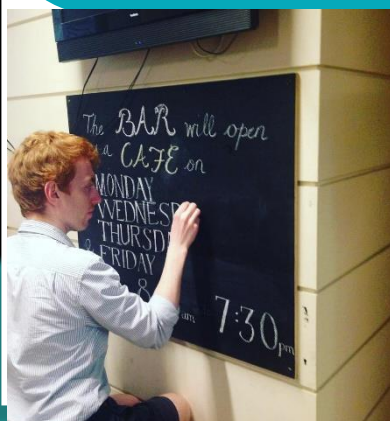 The BAR will open
a CAFE on
MONDAY
WEDNESD
THURSDA
& FRIDAY
8 am 7:30pm